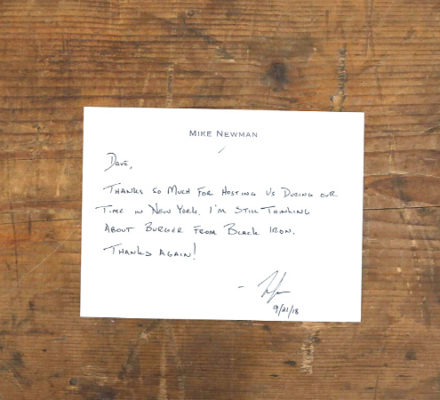 MIKE NEWMAN
DAVE,
THANKS SO MUCH FOR HOSTING US DURING OUR
TIME IN NEW YORK. I'M STILL THINKING
ABOUT BURGER FROM BLACK IRON.
THANKS AGAIN!
9/21/18